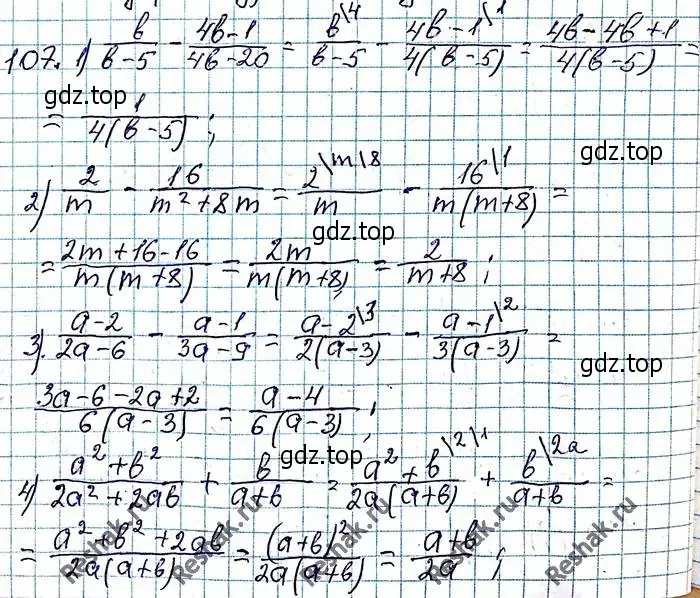 107. 1) в/(в-5) - (4в-1)/(4в-20) = в\4/(в-5) - (4в-1\1)/(4(в-5)) = (4в-4в+1)/(4(в-5)) =
gdz.top
= 1/(4(в-5)) ;
gdz.top
2) 2/m - 16/(m²+8m) = 2\m\8/m - 16\1/(m(m+8)) =
gdz.top
= (2m+16-16)/(m(m+8)) = 2m/(m(m+8)) = 2/(m+8) ;
3). (a-2)/(2a-6) - (a-1)/(3a-9) = (a-2\3)/(2(a-3)) - (a-1\2)/(3(a-3)) =
gdz.top
(3a-6-2a+2)/(6(a-3)) = (a-4)/(6(a-3)) ;
gdz.top
4) (a²+в²)/(2a²+2aв) + в/(a+в) = (a²+в\2\1)/(2a(a+в)) + в\2a/(a+в) =
= (a²+в²+2aв)/(2a(a+в)) = (a+в)²/(2a(a+в)) = (a+в)/2a ;
Reshak.ru Reshak.ru Reshak.ru Reshak.ru